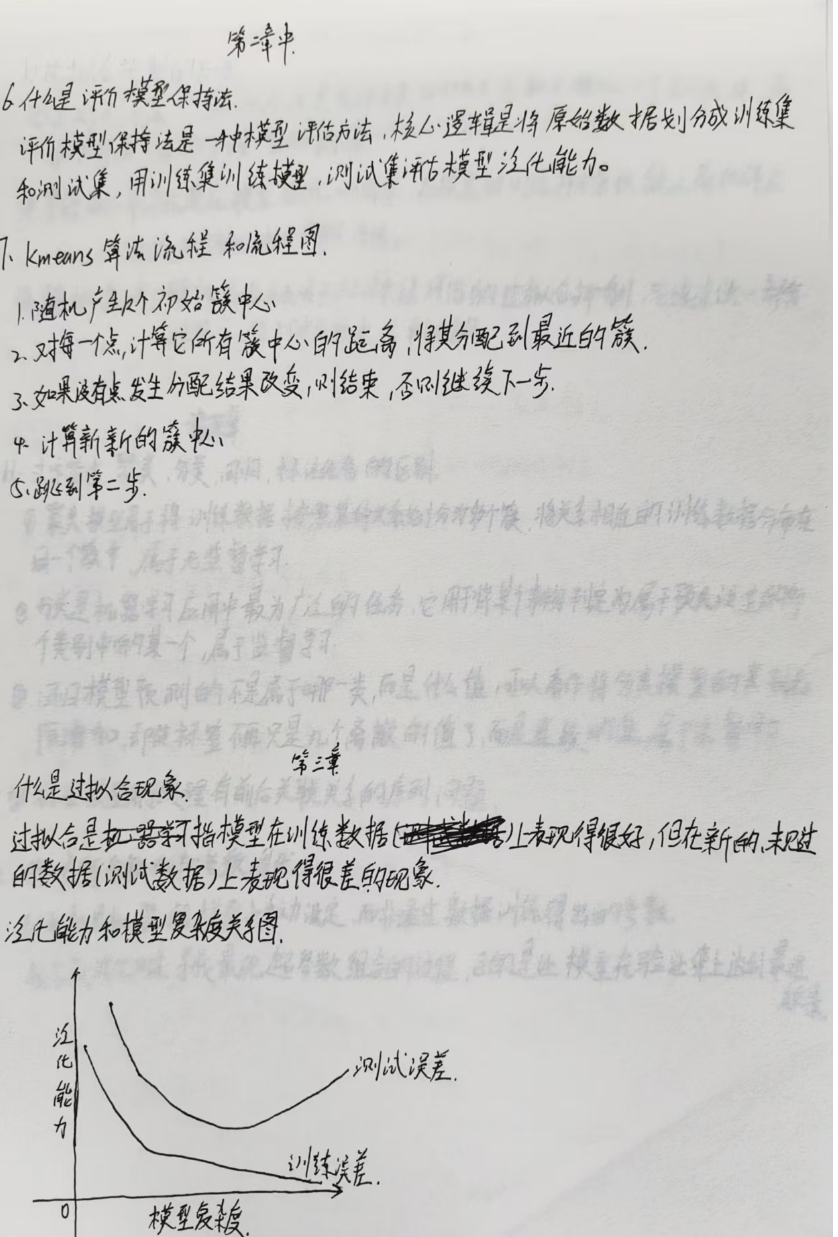 第二章中.
6.什么是评价模型保持法.
评价模型保持法是一种模型评估方法,核心逻辑是将原始数据划分成训练集
和测试集,用训练集训练模型,测试集评估模型泛化能力。
7. Kmeans算法流程和流程图.
1.随机产生K个初始簇中心
2.对每一个点,计算它所有簇中心的距离,将其分配到最近的簇.
3.如果没有点发生分配结果改变,则结束,否则继续下一步.
4.计算新新的簇中心
5.跳到第二步.
第三章
什么是过拟合现象.
过拟合是指模型在训练数据()上表现得很好,但在新的、未见过
的数据(测试数据)上表现得很差的现象.
泛化能力和模型复杂度关系图.
泛化能力
测试误差.
训练误差.
0
模型复杂度.